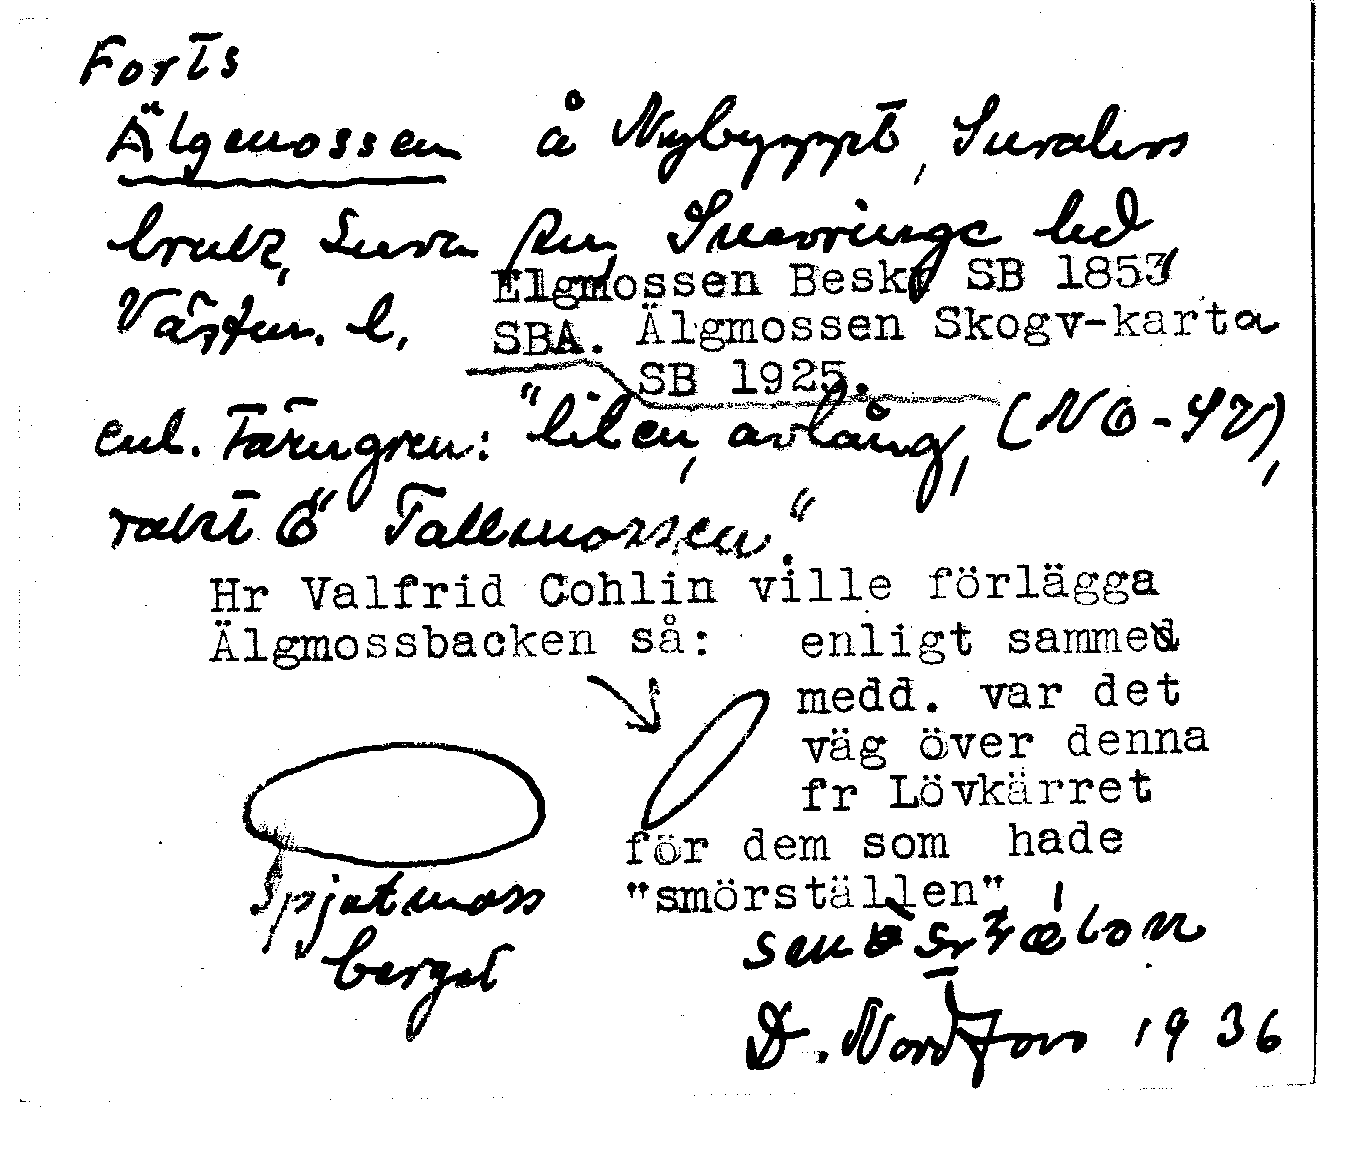 Forts
Älgmossen å Nybyggt, Suralers
bruk, Sura sn, Snevringe hd,
Västm. l.
Elgmossen Beskr SB 1853
SBA. Älgmossen Skogv-karta
SB 1925.
enl. Färngren: "liten, avlång, (NO-SV),
rakt Ö" Tallmossen."
Hr Valfrid Cohlin ville förlägga
Älgmossbacken så:
enligt sammed
medd. var det
väg över denna
fr Lövkärret
för dem som hade
"smörställen"
Spjutmoss
berget
D. Nordfors 1936